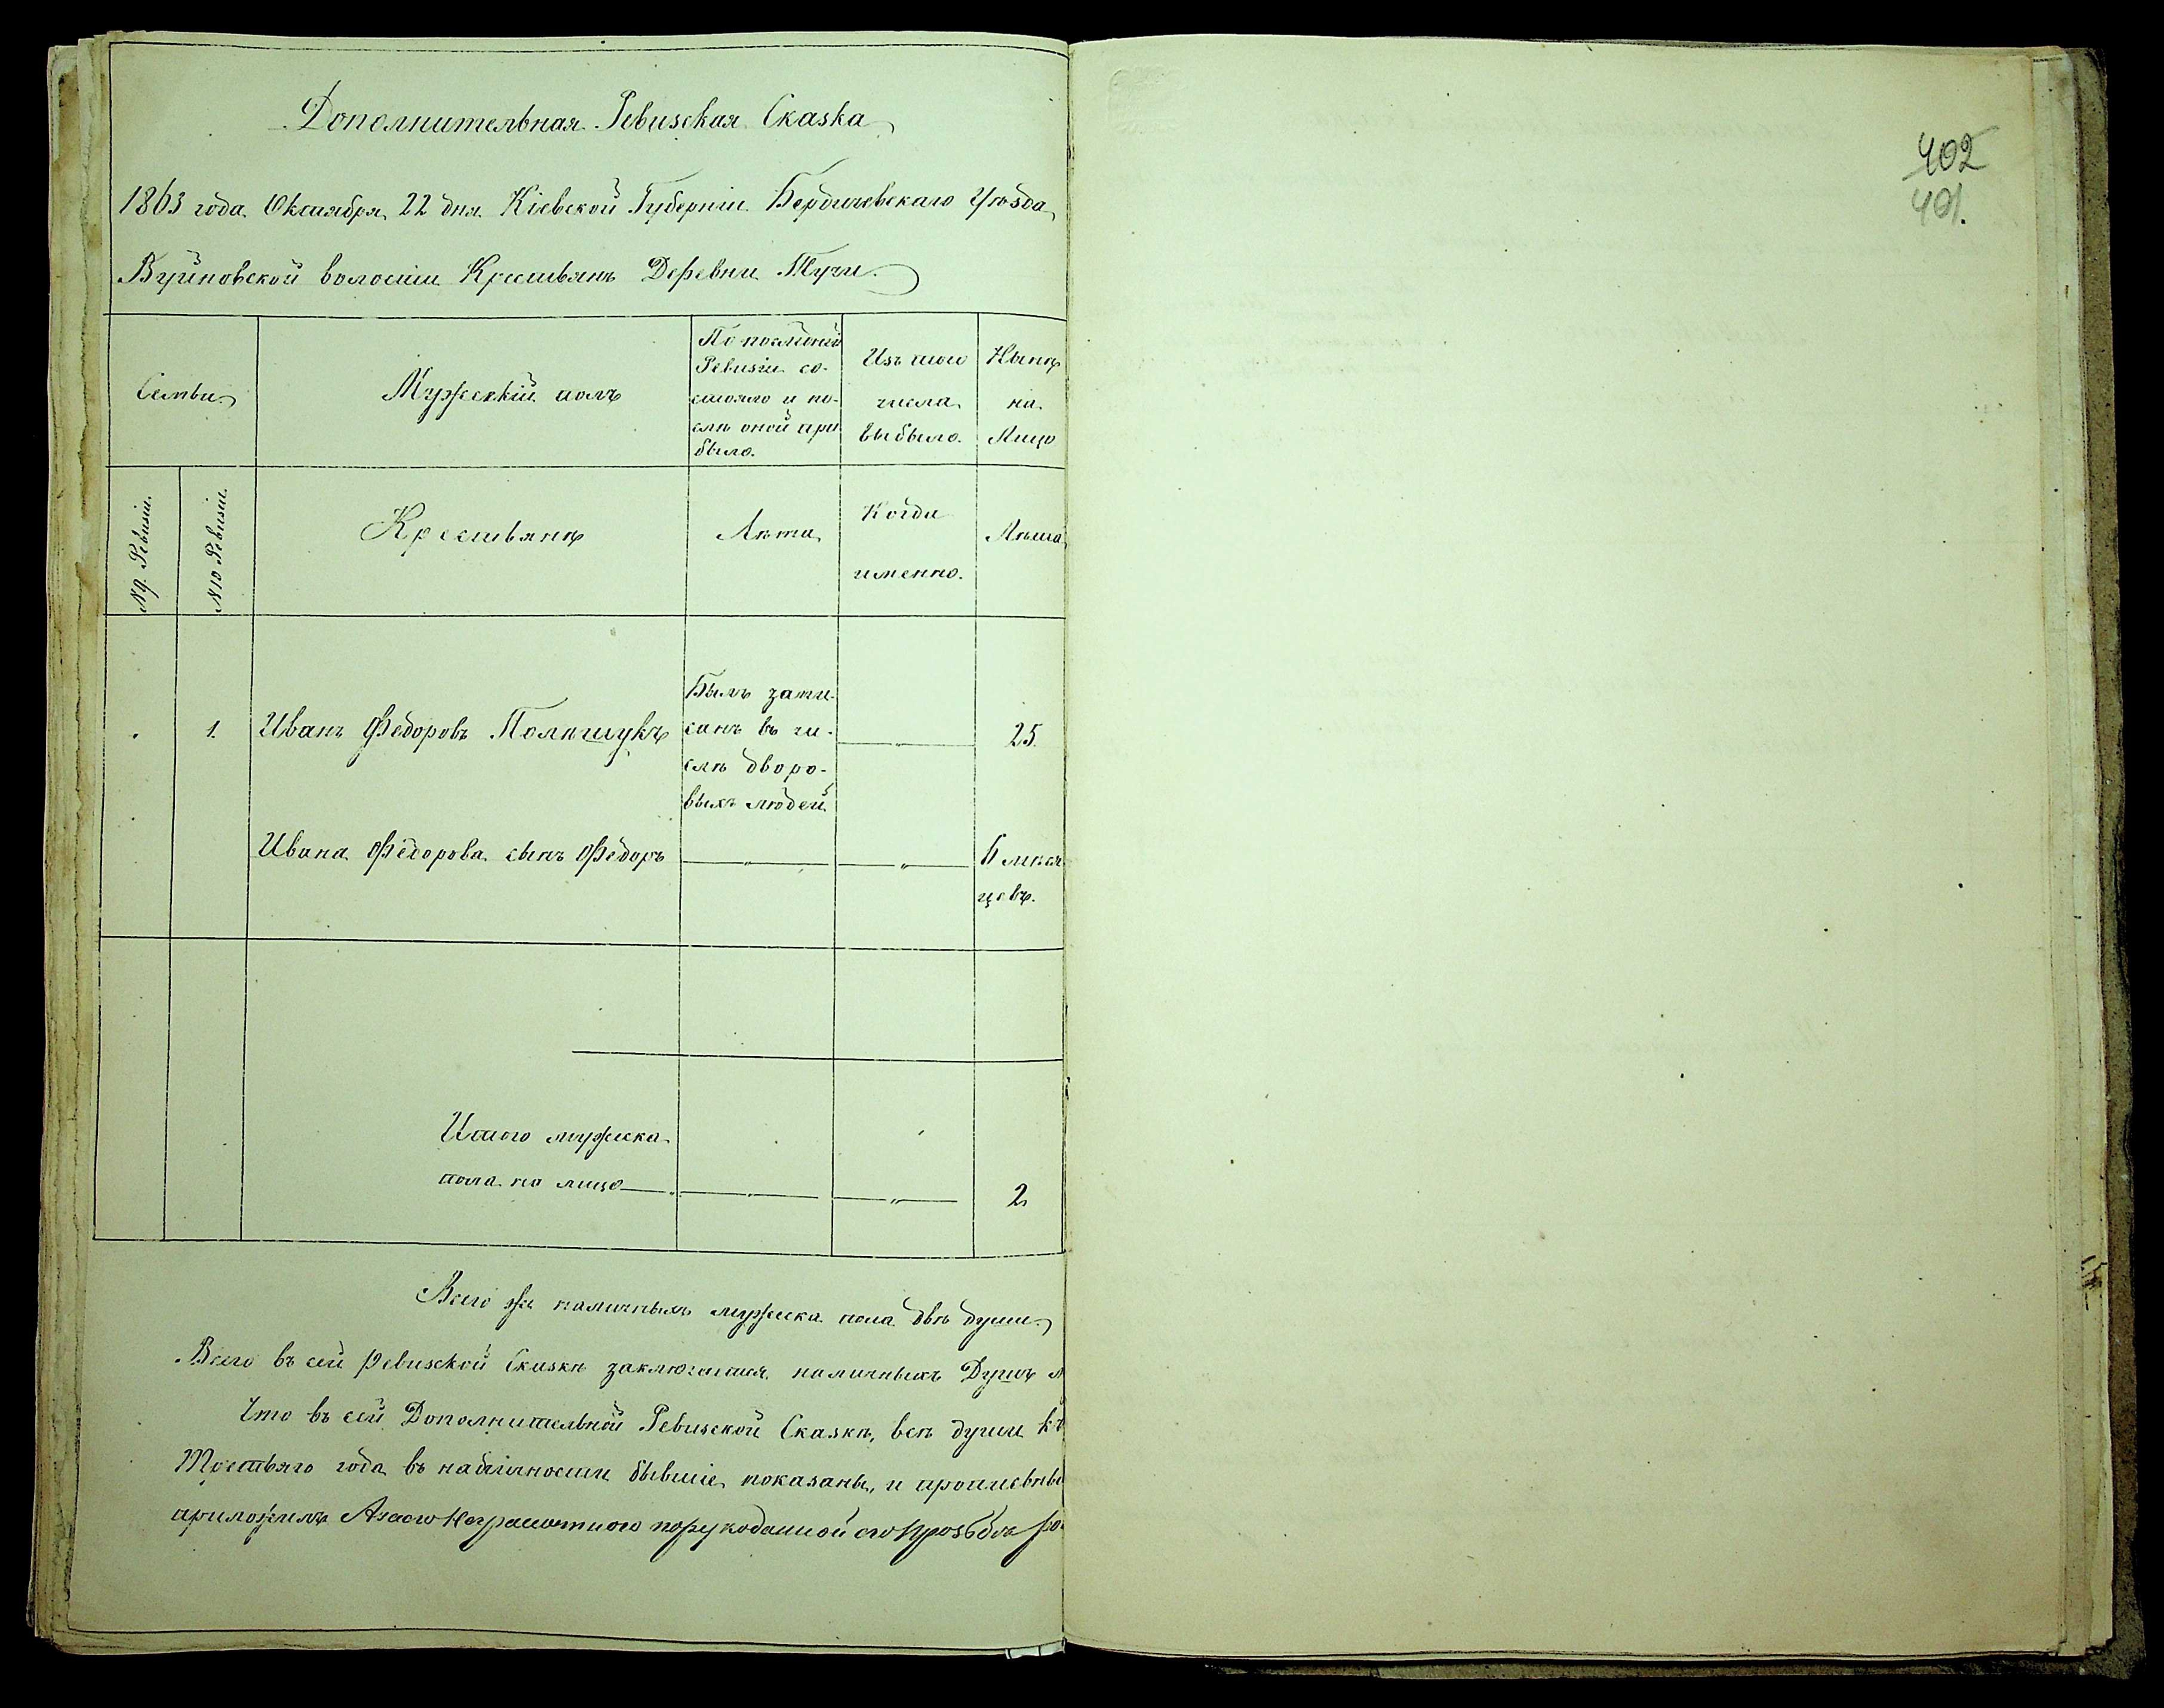 Дополнительная Ревизская Сказка
402
401.
1863 года Октября 22 дня Кіевской Губерніи Бердичевскаго Уѣзда
Вуйновской волости Крестьянъ Деревни Тучи
Семьи
Мужескій полъ
По последней
Ревизіи со-
стояло и по-
слѣ оной при
было.
Изъ того
числа
выбыло.
Нынѣ
на
Лицо
№ 9. Ревизіи.
№ 10 Ревизіи.
Крестьянъ
Лѣта
Когда
именно.
Лѣта
1. Иванъ Федоровъ Полѣщукъ
Былъ запи-
санъ въ чи-
слѣ дворо-
выхъ людей
25
Ивана Федорова сынъ Федоръ
6 мѣся
цевъ.
Итого мужеска
пола на лицо
2
Всего же наличныхъ мужеска пола двѣ души
Всего въ сей Ревизской Сказкѣ заключается наличныхъ Душъ м
Что въ сей Дополнительной Ревизской Сказкѣ, всѣ души къ
Третьяго года въ наличности бывшіе показаны, и прописны
приложилъ Азасто Неграмотного порукоданной его прозьбѣ ро